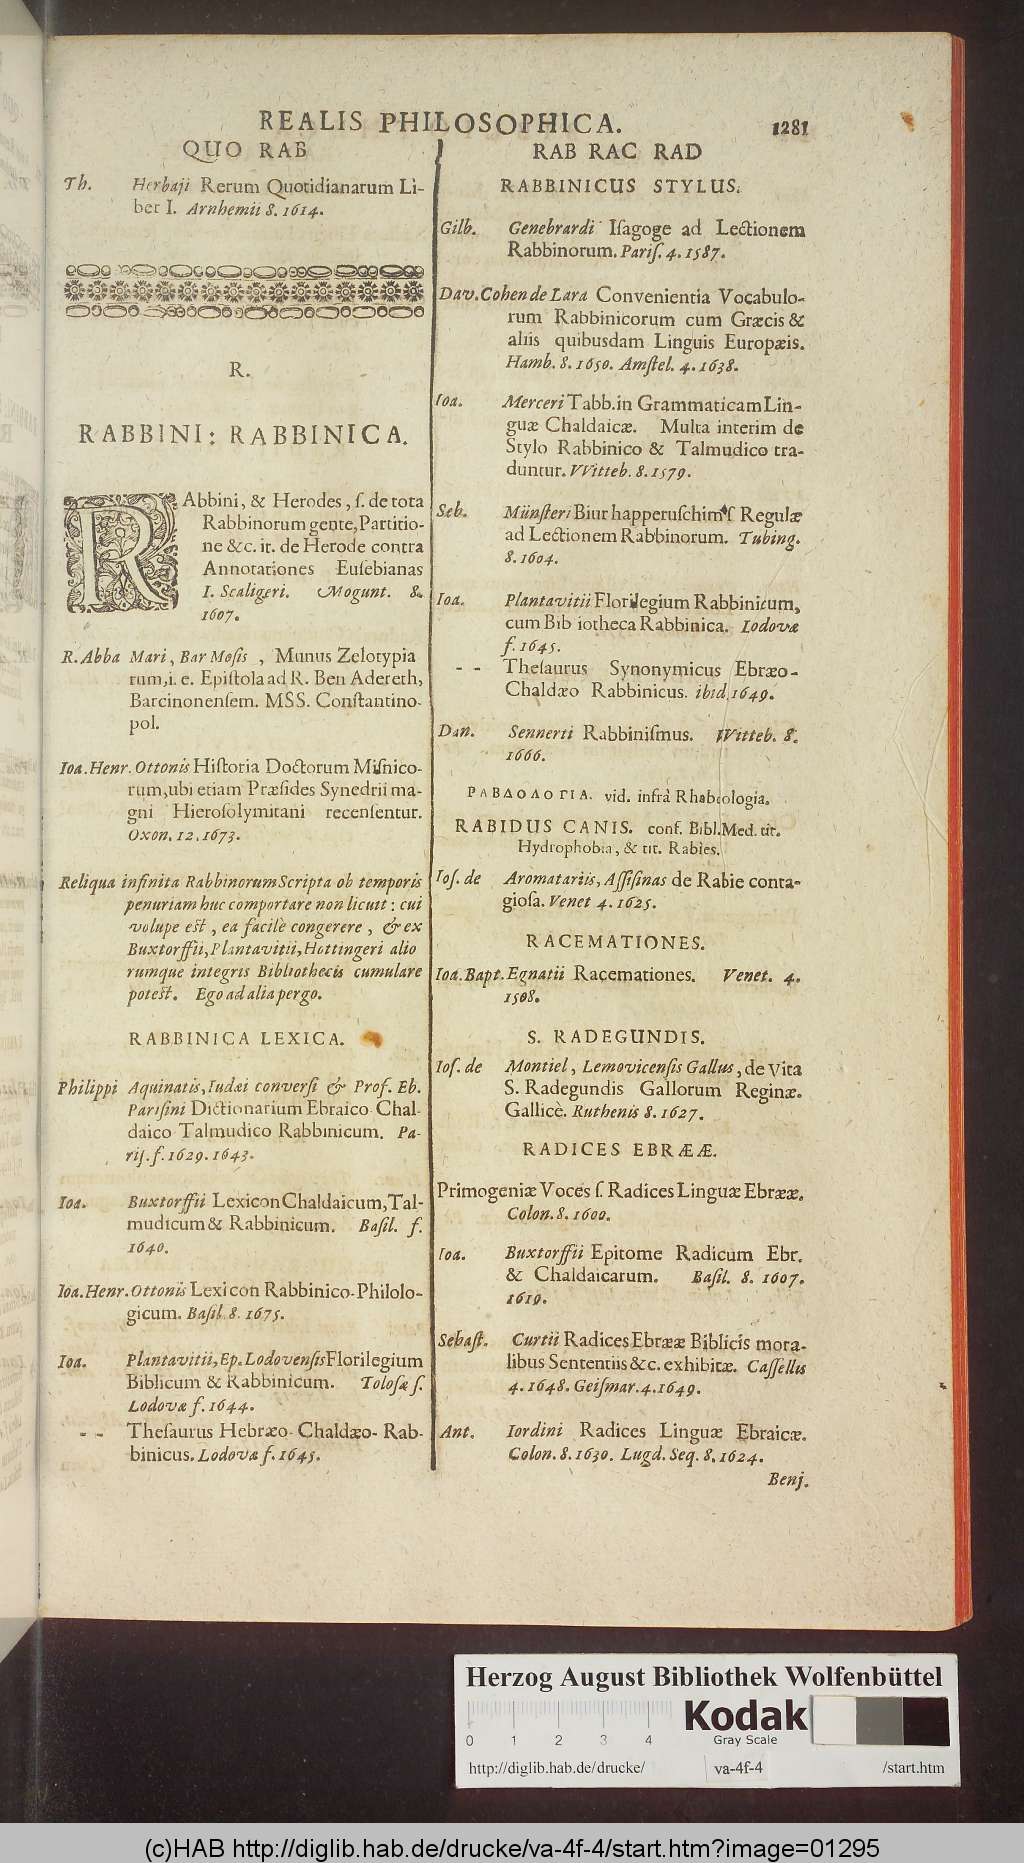 REALIS PHILOSOPHICA. 1281
QUO RAB
Th. Herbaji Rerum Quotidianarum Li-
ber I. Arnhemii 8. 1614.
R.
RABBINI: RABBINICA.
RAbbini, & Herodes, ſ. de tota
Rabbinorum gente, Partitio-
ne &c. it. de Herode contra
Annotationes Euſebianas
I. Scaligeri. Mogunt. 8.
1607.
R. Abba Mari, Bar Moſis, Munus Zelotypia
rum, i. e. Epiſtola ad R. Ben Adereth,
Barcinonenſem. MSS. Conſtantino-
pol.
Ioa. Henr. Ottonis Hiſtoria Doctorum Miſnico-
rum, ubi etiam Præſides Synedrii ma-
gni Hieroſolymitani recenſentur.
Oxon. 12. 1673.
Reliqua infinita Rabbinorum Scripta ob temporis
penuriam huc comportare non licuit: cui
volupe eſt, ea facilè congerere, & ex
Buxtorffii, Plantavitii, Hottingeri alio
rumque integris Bibliothecis cumulare
poteſt. Ego ad alia pergo.
RABBINICA LEXICA.
Philippi Aquinatis, Iudæi converſi & Prof. Eb.
Pariſini Dictionarium Ebraico-Chal-
daico-Talmudico Rabbinicum. Pa-
riſ. f. 1629. 1643.
Ioa. Buxtorffii Lexicon Chaldaicum, Tal-
mudicum & Rabbinicum. Baſil. f.
1640.
Ioa. Henr. Ottonis Lexicon Rabbinico-Philolo-
gicum. Baſil. 8. 1675.
Ioa. Plantavitii, Ep. Lodovenſis Florilegium
Biblicum & Rabbinicum. Toloſæ ſ.
Lodovæ f. 1644.
- - Theſaurus Hebræo-Chaldæo-Rab-
binicus. Lodovæ f. 1645.
RAB RAC RAD
RABBINICUS STYLUS.
Gilb. Genebrardi Iſagoge ad Lectionem
Rabbinorum. Pariſ. 4. 1587.
Dav. Cohen de Lara Convenientia Vocabulo-
rum Rabbinicorum cum Græcis &
aliis quibusdam Linguis Europæis.
Hamb. 8. 1650. Amſtel. 4. 1638.
Ioa. Merceri Tabb. in Grammaticam Lin-
guæ Chaldaicæ. Multa interim de
Stylo Rabbinico & Talmudico tra-
duntur. VVitteb. 8. 1579.
Seb. Münſteri Biur happeruſchim ſ Regulæ
ad Lectionem Rabbinorum. Tubing.
8. 1604.
Ioa. Plantavitii Florilegium Rabbinicum,
cum Bib iotheca Rabbinica. Lodovæ
f. 1645.
- - Theſaurus Synonymicus Ebræo-
Chaldæo Rabbinicus. ibid. 1649.
Dan. Sennerti Rabbiniſmus. Witteb. 8.
1666.
ΡΑΒΔΟΛΟΓΙΑ. vid. infrà Rhabdologia.
RABIDUS CANIS. conf. Bibl. Med. tit.
Hydrophobia, & tit. Rabies.
Ioſ. de Aromatariis, Aſſiſinas de Rabie conta-
gioſa. Venet 4. 1625.
RACEMATIONES.
Ioa. Bapt. Egnatii Racemationes. Venet. 4.
1508.
S. RADEGUNDIS.
Ioſ. de Montiel, Lemovicenſis Gallus, de Vita
S. Radegundis Gallorum Reginæ.
Gallicè. Ruthenis 8. 1627.
RADICES EBRÆÆ.
Primogeniæ Voces ſ. Radices Linguæ Ebrææ.
Colon. 8. 1600.
Ioa. Buxtorffii Epitome Radicum Ebr.
& Chaldaicarum. Baſil. 8. 1607.
1619.
Sebaſt. Curtii Radices Ebrææ Biblicis mora-
libus Sententiis &c. exhibitæ. Caſſellis
4. 1648. Geiſmar. 4. 1649.
Ant. Iordini Radices Linguæ Ebraicæ.
Colon. 8. 1630. Lugd. Seq. 8. 1624.
Benj.
Herzog August Bibliothek Wolfenbüttel
0 1 2 3 4
Kodak
Gray Scale
http://diglib.hab.de/drucke/ va-4f-4 /start.htm
(c)HAB http://diglib.hab.de/drucke/va-4f-4/start.htm?image=01295